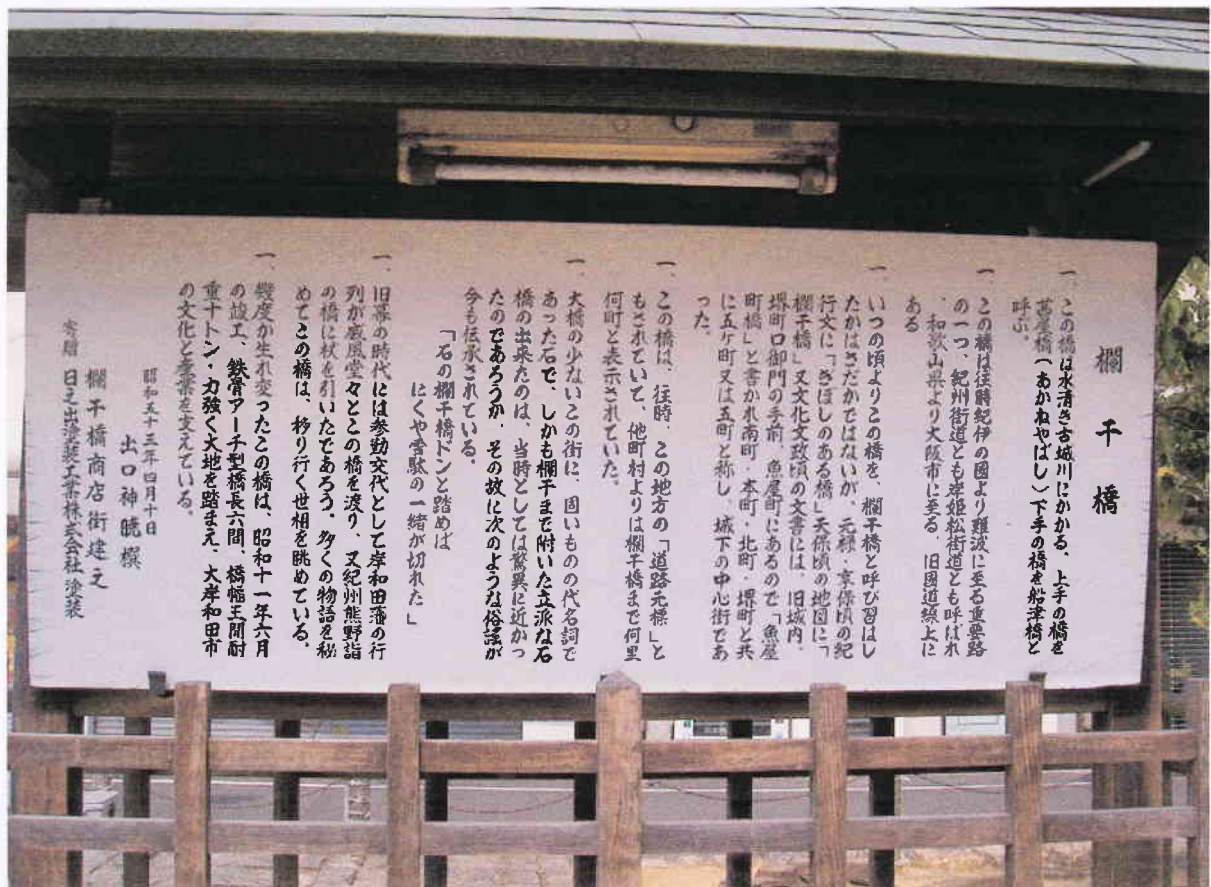 欄干橋
一、この橋は水清き古城川にかかる、上手の橋を
萬屋橋(あかねやばし)下手の橋を船津橋と
呼ぶ。
一、この橋は往時紀伊の國より難波に至る重要路
の一つ、紀州街道とも岸姫松街道とも呼ばれ
、和歌山県より大阪市に至る 旧國道線上に
ある
一、いつの頃よりこの橋を、欄干橋と呼び習はし
たかはさだかではないが、元禄・享保頃の紀
行文に「ぎぼしのある橋」天保頃の地図に「
欄干橋」又文化文政頃の文書には、旧城内、
堺町口御門の手前、魚屋町にあるので「魚屋
町橋」と書かれ南町・本町・北町・堺町と共
に五ヶ町又は五町と称し、城下の中心街であ
った。
一、この橋は、往時、この地方の「道路元標」と
もされていて、他町村よりは欄干橋まで何里
何町と表示されていた。
一、大橋の少ないこの街に、固いものの代名詞で
あった石で、しかも欄干まで附いた立派な石
橋の出来たのは、当時としては驚異に近かっ
たのであろうか、その故に次のような俗謡が
今も伝承されている。
「石の欄干橋ドンと踏めば
にくや雪駄の一緒が切れた」
一、旧幕の時代には参勤交代として岸和田藩の行
列が威風堂々とこの橋を渡り、又紀州熊野詣
の橋に杖を引いたであろう、多くの物語を秘
めてこの橋は、移り行く世相を眺めている。
一、幾度か生れ変ったこの橋は、昭和十一年六月
の竣工、鉄骨アーチ型橋長六間、橋幅五間耐
重十トン・力強く大地を踏まえ、大岸和田市
の文化と産業を支えている。
昭和五十三年四月十日
出口神暁撰
欄干橋商店街建之
寄贈 日之出塗装工業株式会社塗装